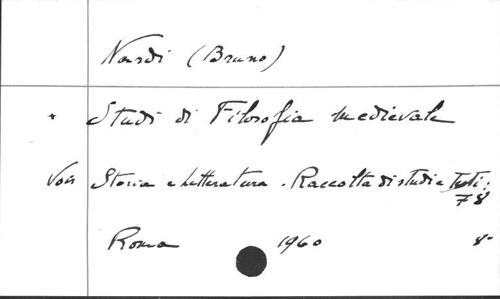 Nardi (Bruno)
* Studi di Filosofia medievale
Voir Storia e letteratura. Raccolta di studi e testi;
78
Roma 1960 8°